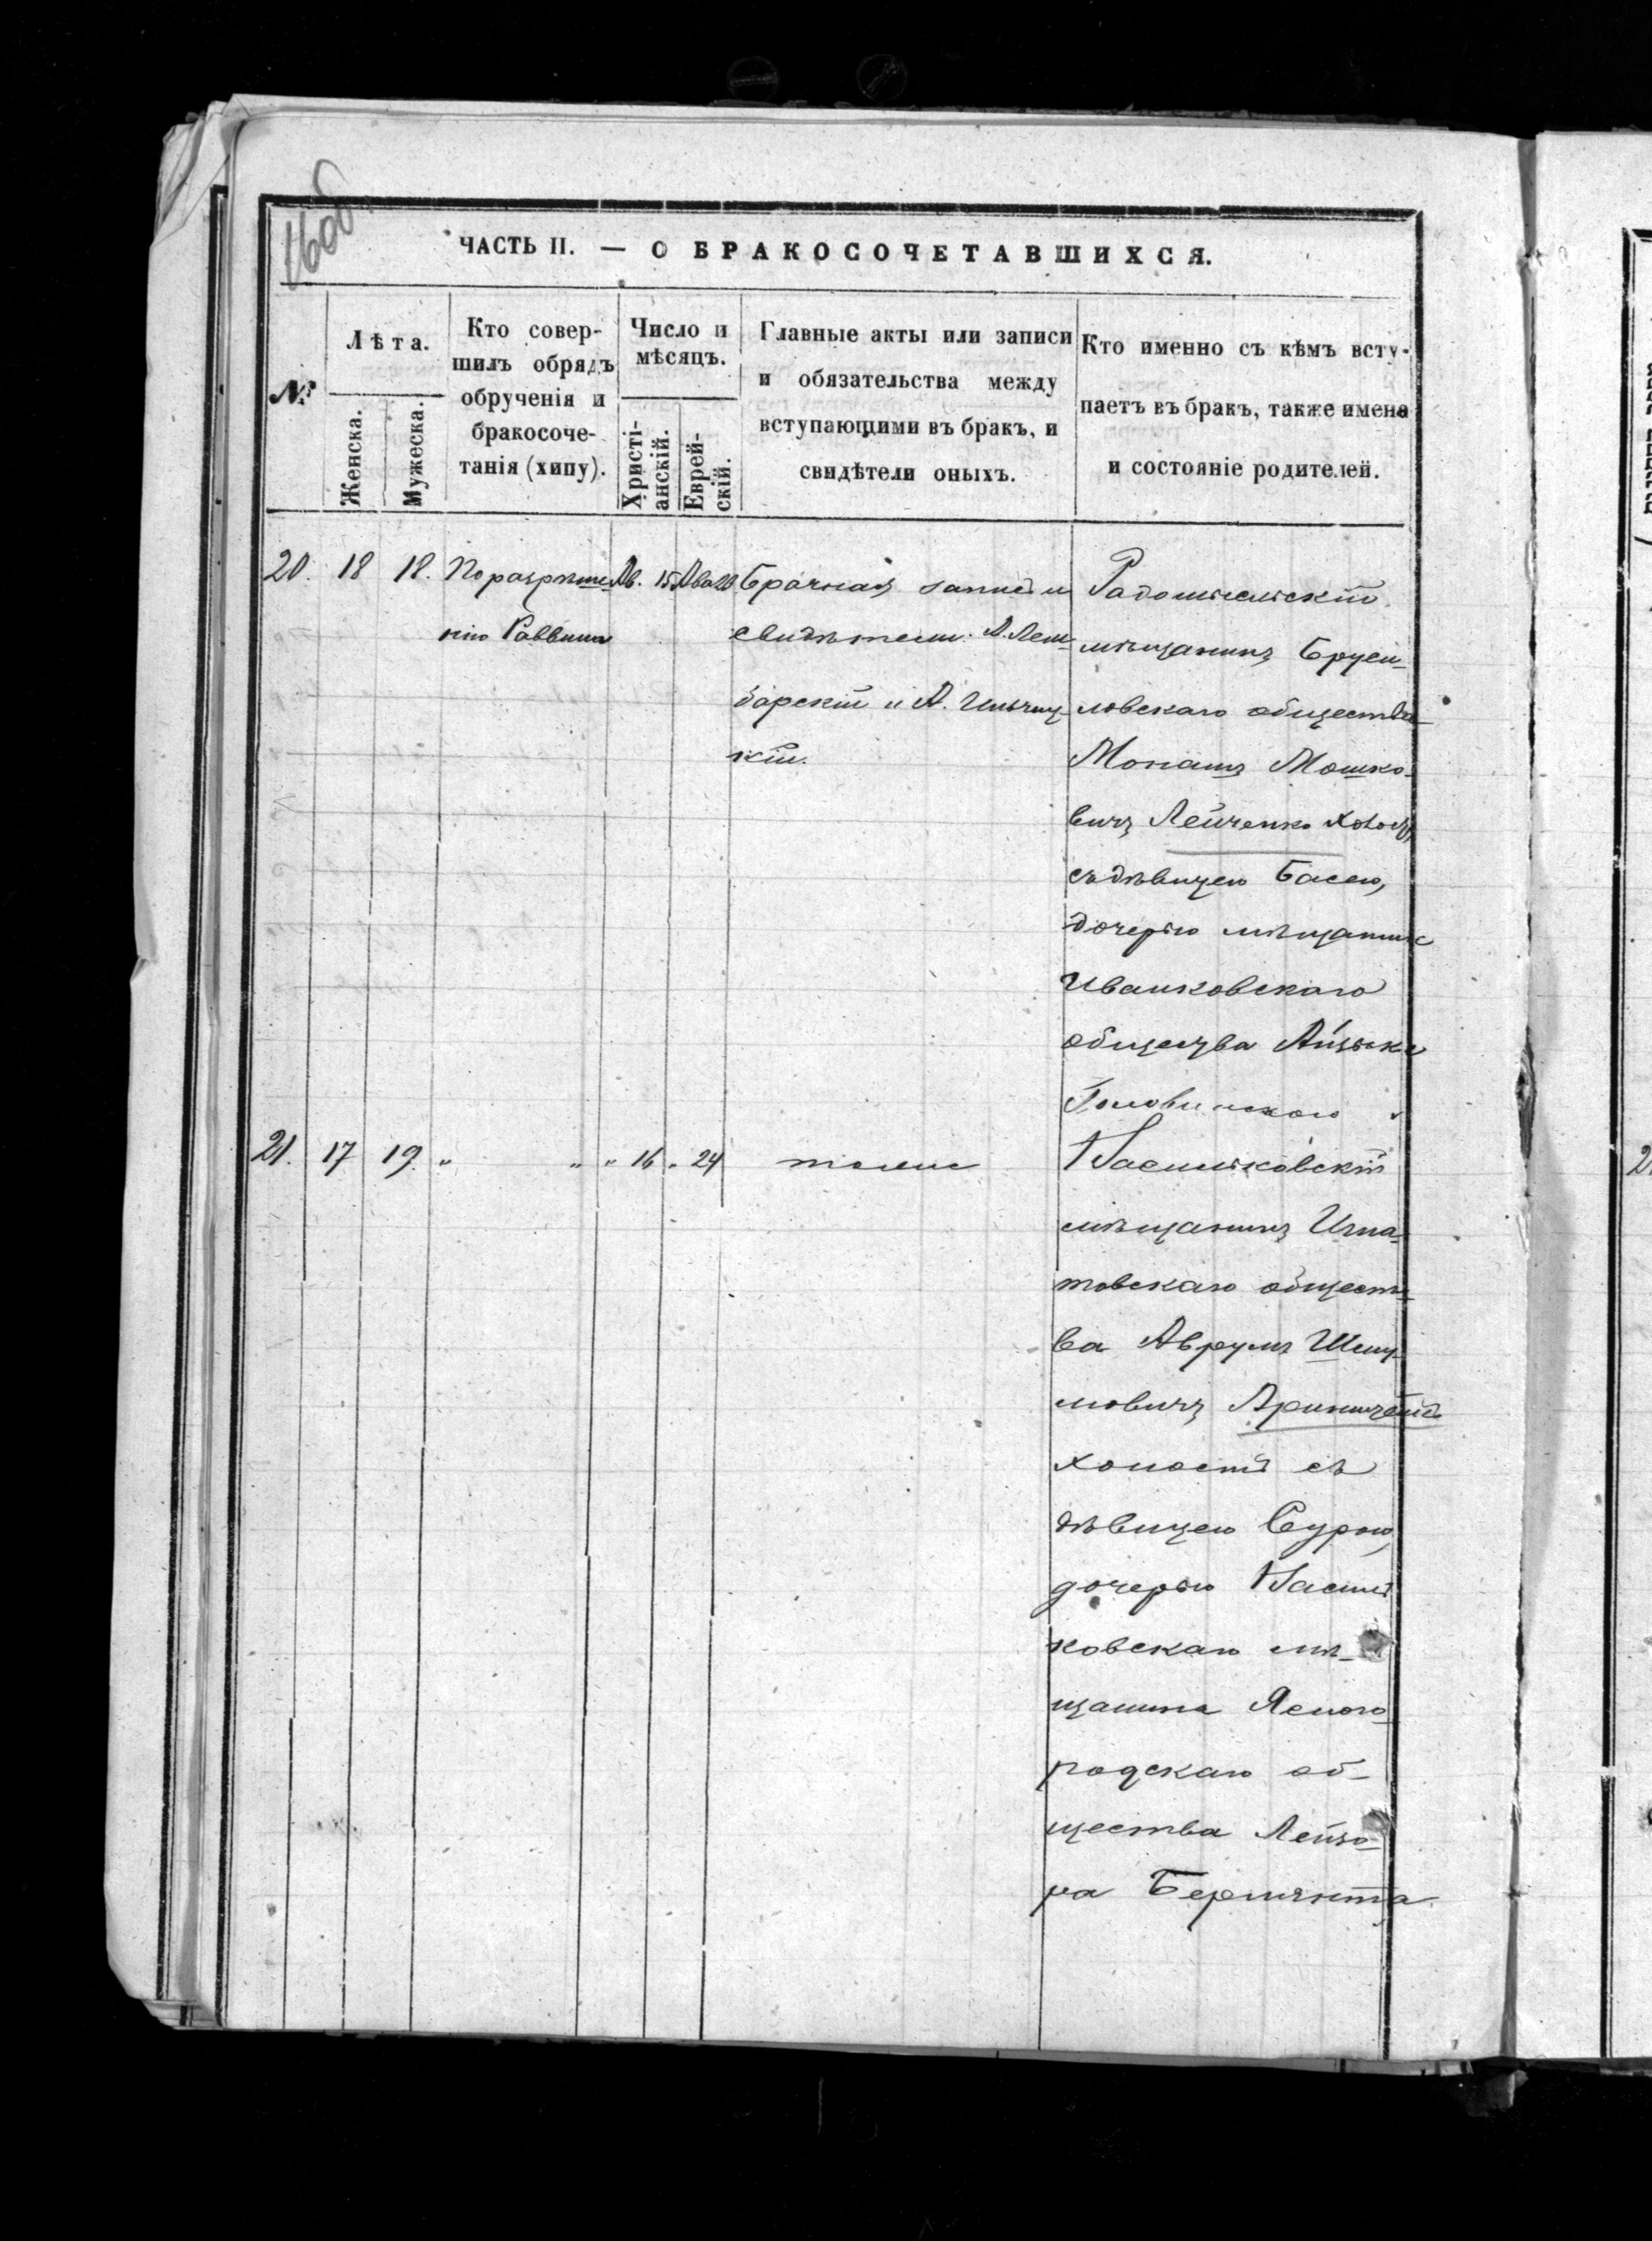 160об.
ЧАСТЬ II. — О БРАКОСОЧЕТАВШИХСЯ.
№
Лѣта.
Женска.
Мужеска.
Кто совер-
шилъ обрядъ
обрученія и
бракосоче-
танія (хипу).
Число и
мѣсяцъ.
Христі-
анскій.
Еврей-
скій.
Главные акты или записи
и обязательства между
вступающими въ бракъ, и
свидѣтели оныхъ.
Кто именно съ кѣмъ всту-
паетъ въ бракъ, также имена
и состояніе родителей.
20. 18 18. По разрѣше Ав. 15 Ава 23
нію Раввина
Брачная запись и
свидѣтели: А. Лем-
барскій и А. Ильниц-
кій.
Радомысльскій
мѣщанинъ Бруси-
ловскаго общества
Монашъ Мошко-
вичъ Лейченко холост
съ дѣвицею Басею,
дочерью мѣщанина
Иванковскаго
общества Айзыка
Головинскаго
21. 17 19. " " " 16 " 24 тоже
Васильковскій
мѣщанинъ Игна-
товскаго общест-
ва Аврумъ Шму-
ловичъ
холостъ съ
дѣвицею Сурою,
дочерью Василь
ковскаго мѣ-
щанина Ясного-
родскаго об-
щества Лейзо-
ра